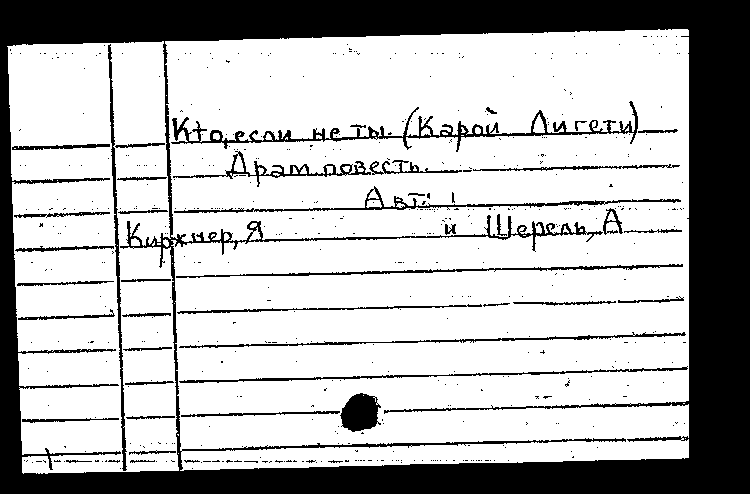 Кто, если не ты. (Карой Лигети)
Драм. повесть.
Авт.:
Кирхнер, Я и Шерель, А